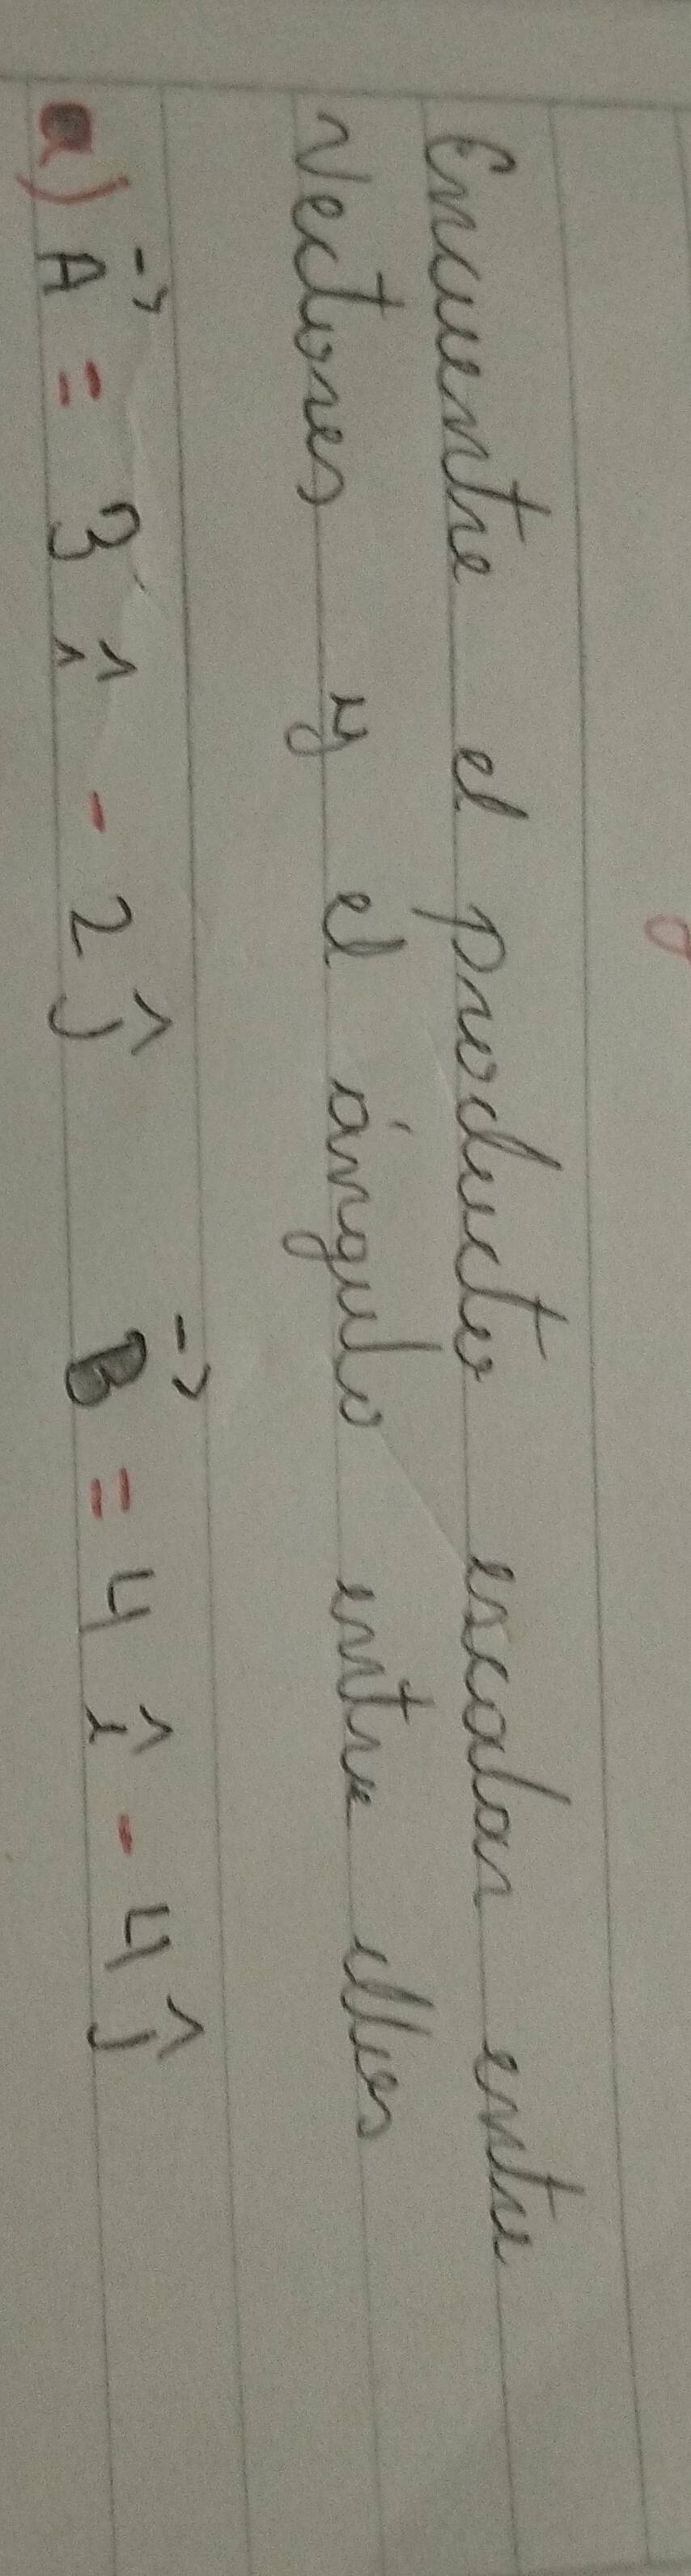 Encuentre el producto escalar entre
Vectores y el ángulo entre ellos
a) A⃗ = 3 î - 2 ĵ B⃗ = 4 î - 4 ĵ